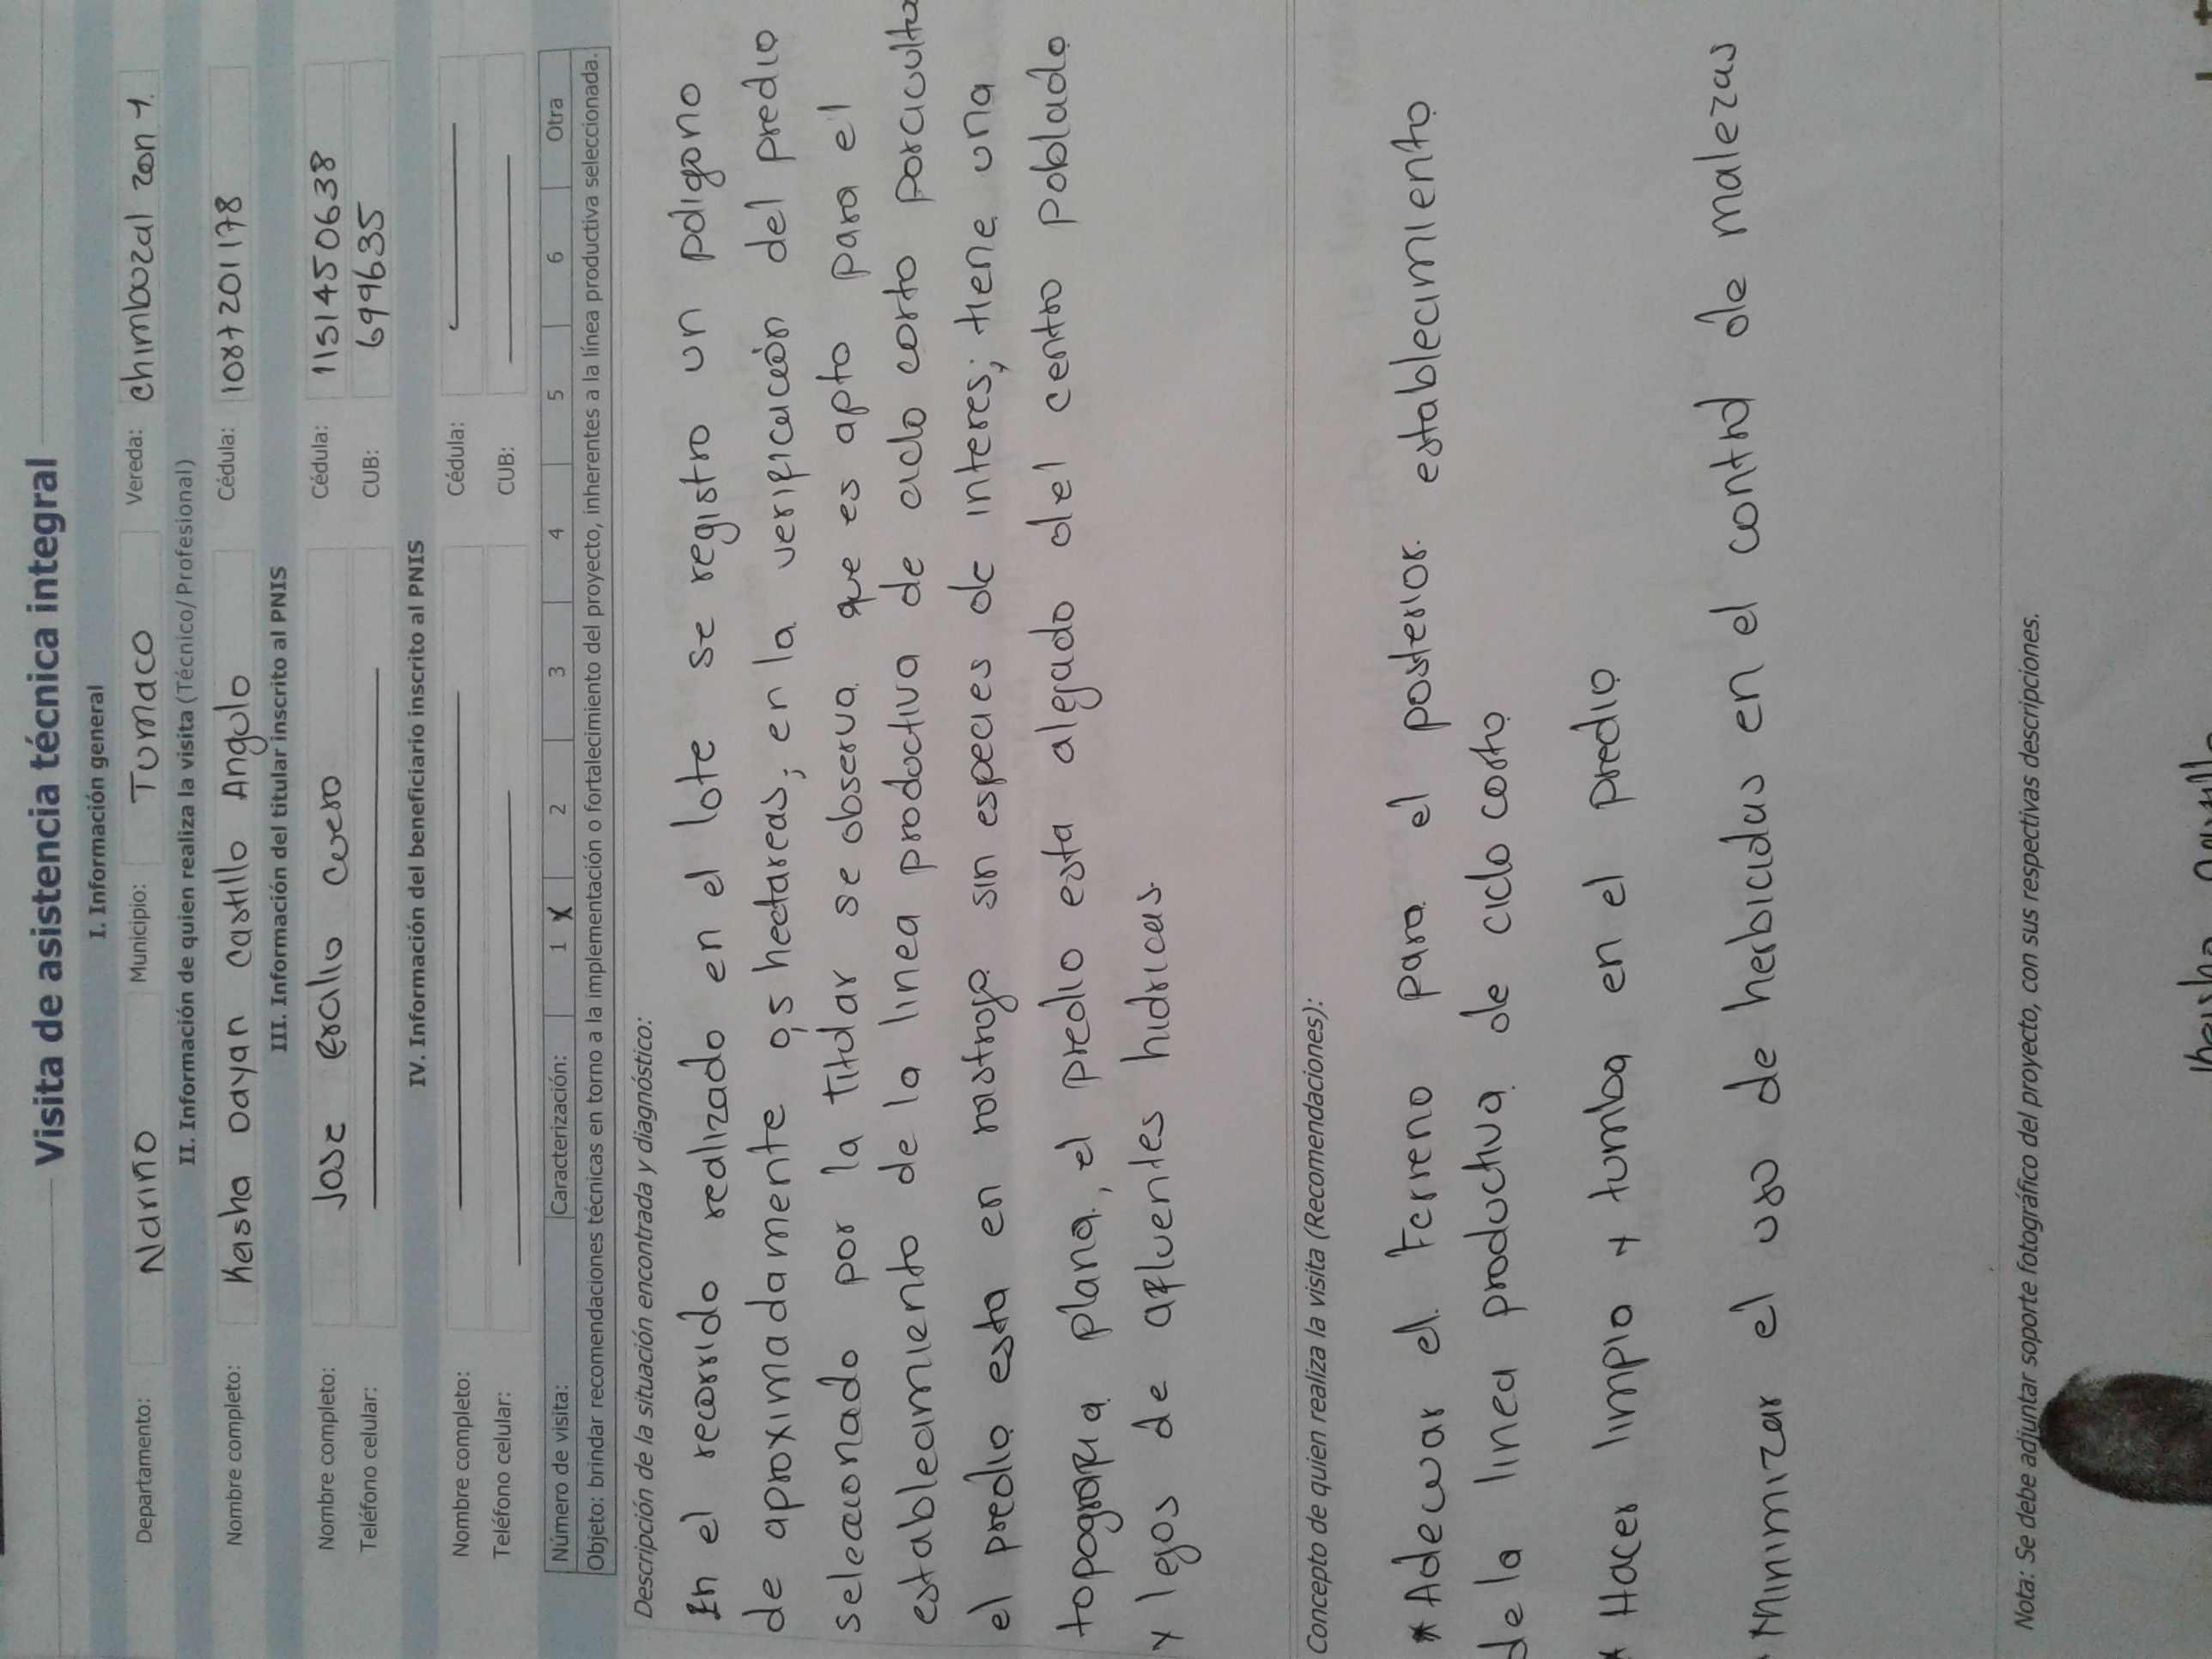 Visita de asistencia técnica integral
I. Información general
Departamento: Nariño Municipio: Tumaco Vereda: chimbuzal zon 1.
II. Información de quien realiza la visita (Técnico/Profesional)
Nombre completo: Keisha Dayan Castillo Angulo Cédula: 1087201178
III. Información del titular inscrito al PNIS
Nombre completo: Jose Erallo Cuero Cédula: 1151450638
Teléfono celular: CUB: 699635
IV. Información del beneficiario inscrito al PNIS
Nombre completo: Cédula:
Teléfono celular: CUB:
Número de visita: Caracterización: 1 X 2 3 4 5 6 Otra
Objeto: brindar recomendaciones técnicas en torno a la implementación o fortalecimiento del proyecto, inherentes a la línea productiva seleccionada.
Descripción de la situación encontrada y diagnóstico:
En el recorrido realizado en el lote se registro un poligono
de aproximadamente 0,5 hectareas; en la verificación del predio
seleccionado por la titular se observa que es apto para el
establecimiento de la linea productiva de ciclo corto porcicultura
el predio esta en rastrojo sin especies de interes; tiene una
topografia plana, el predio esta alejado del centro poblado
y lejos de afluentes hidricas.
Concepto de quien realiza la visita (Recomendaciones):
* Adecuar el Terreno para el posterior establecimiento
de la linea productiva de ciclo corto
* Hacer limpia y tumba en el predio
Minimizar el uso de herbicidas en el control de malezas
Nota: Se debe adjuntar soporte fotográfico del proyecto, con sus respectivas descripciones.